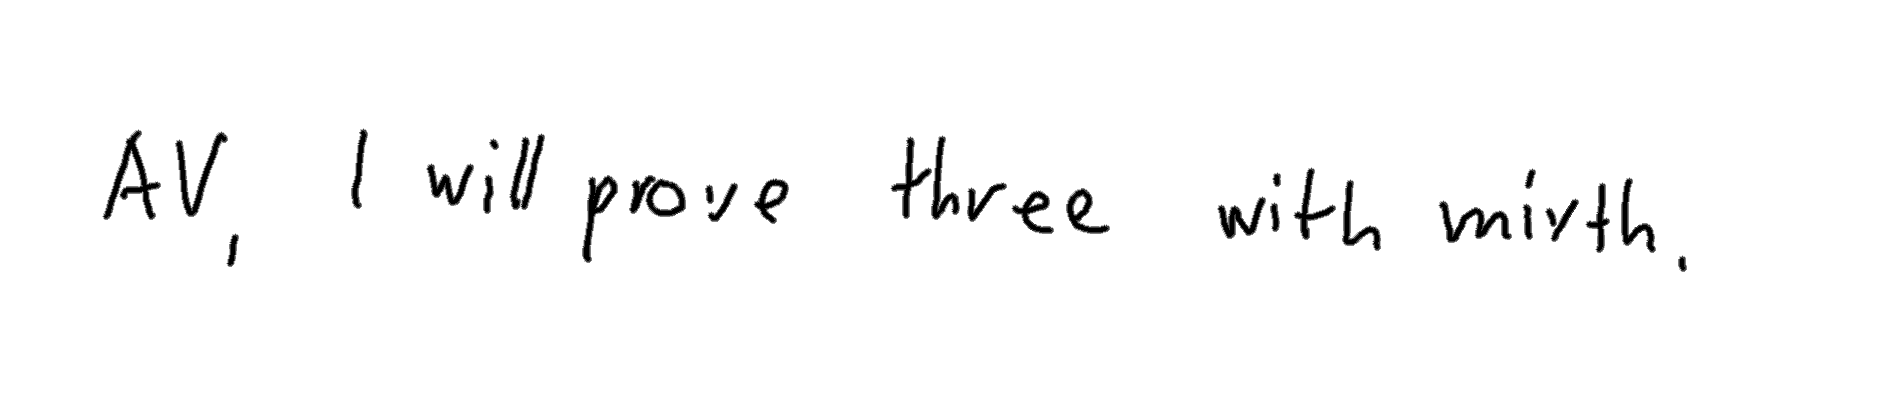 AV, I will prove three with mirth.